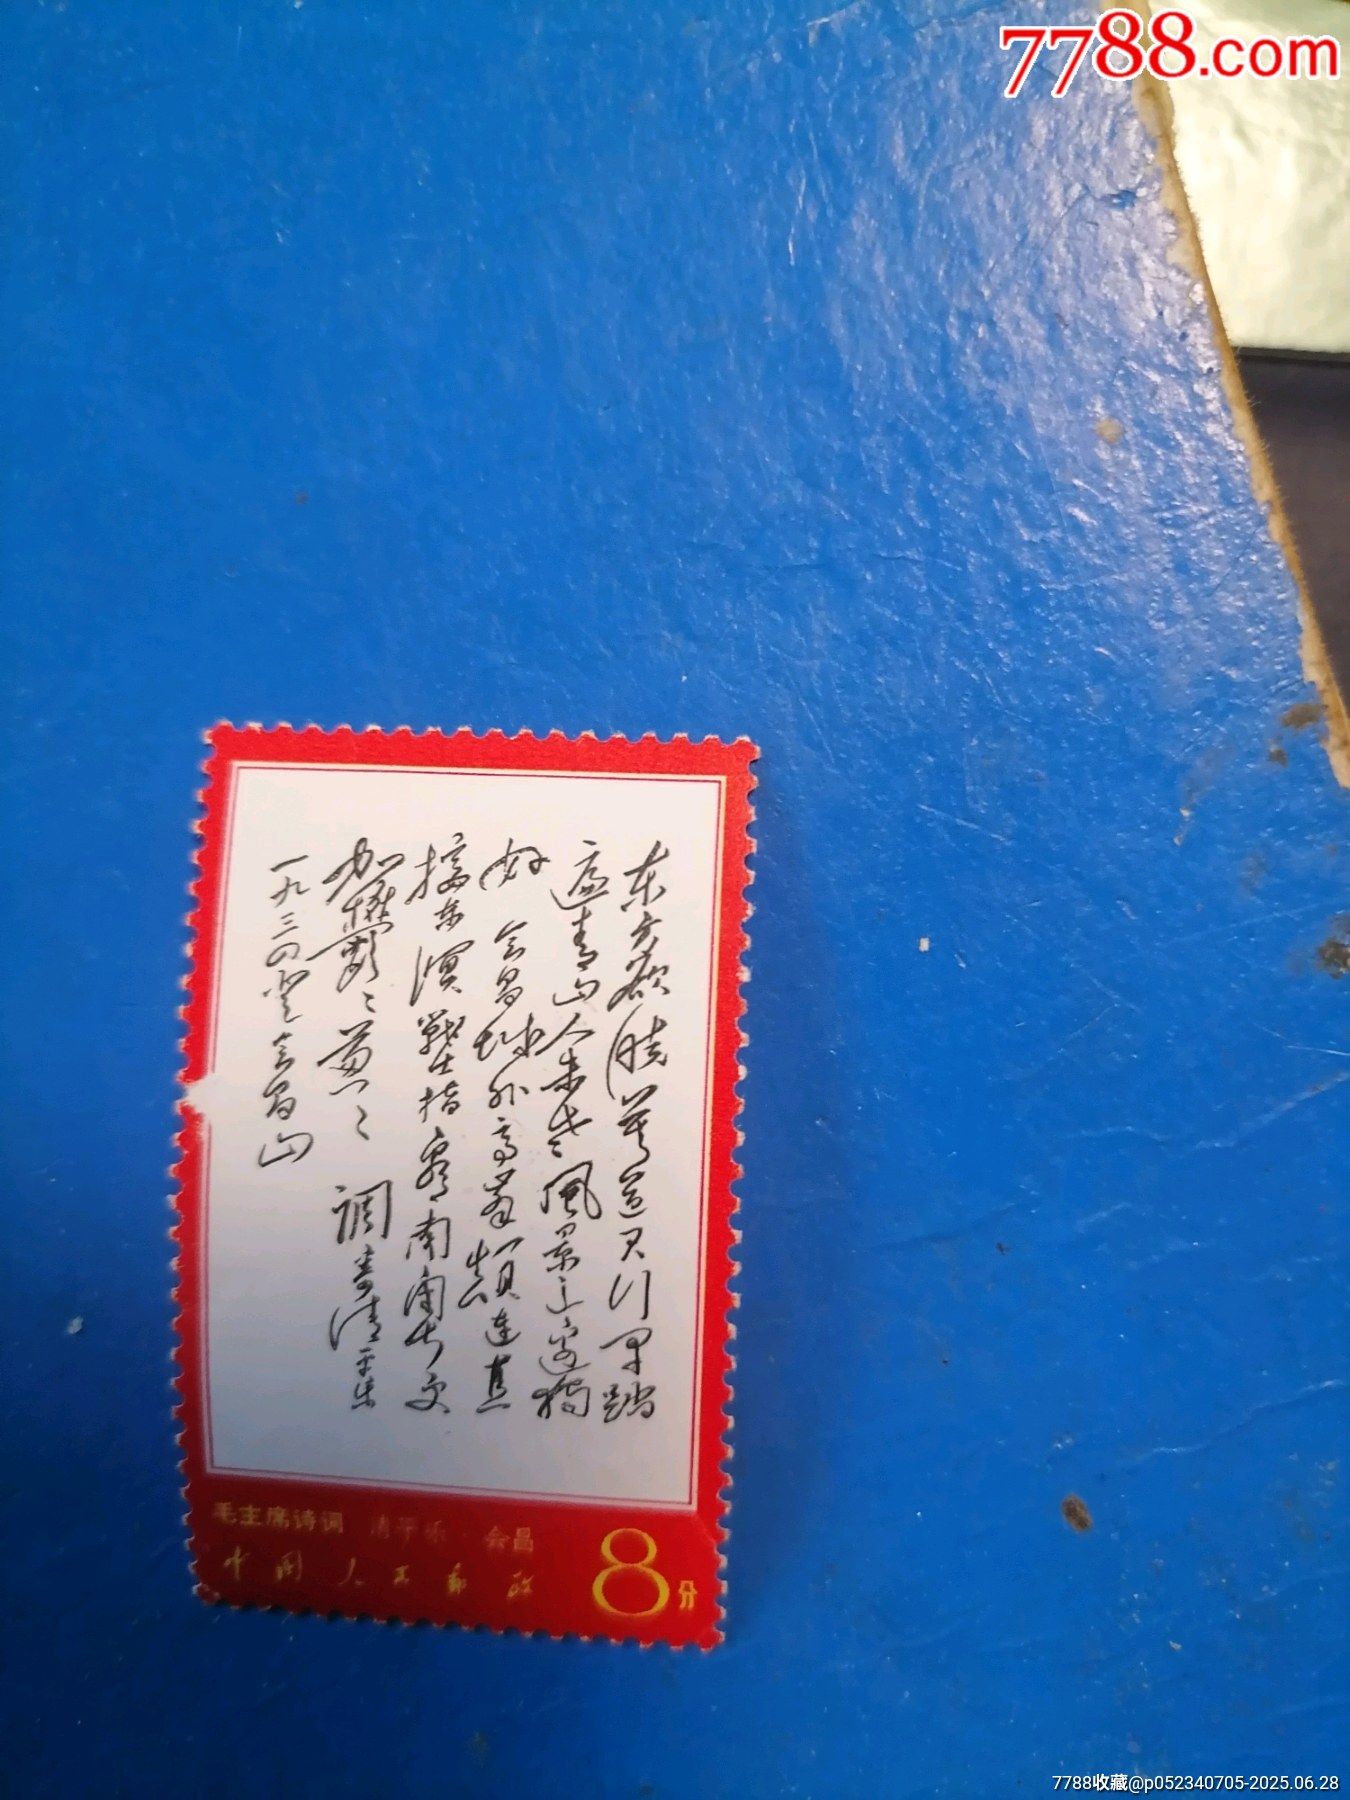 7788.com
东方欲晓莫道君行早踏
遍青山人未老风景这边独
好 会昌城外高峰颠连直
接东溟战士指看南粤更
加郁郁葱葱 调寄清平乐
一九三四登会昌山
毛主席诗词 清平乐·会昌
中国人民邮政
8分
7788收藏@p052340705-2025.06.28